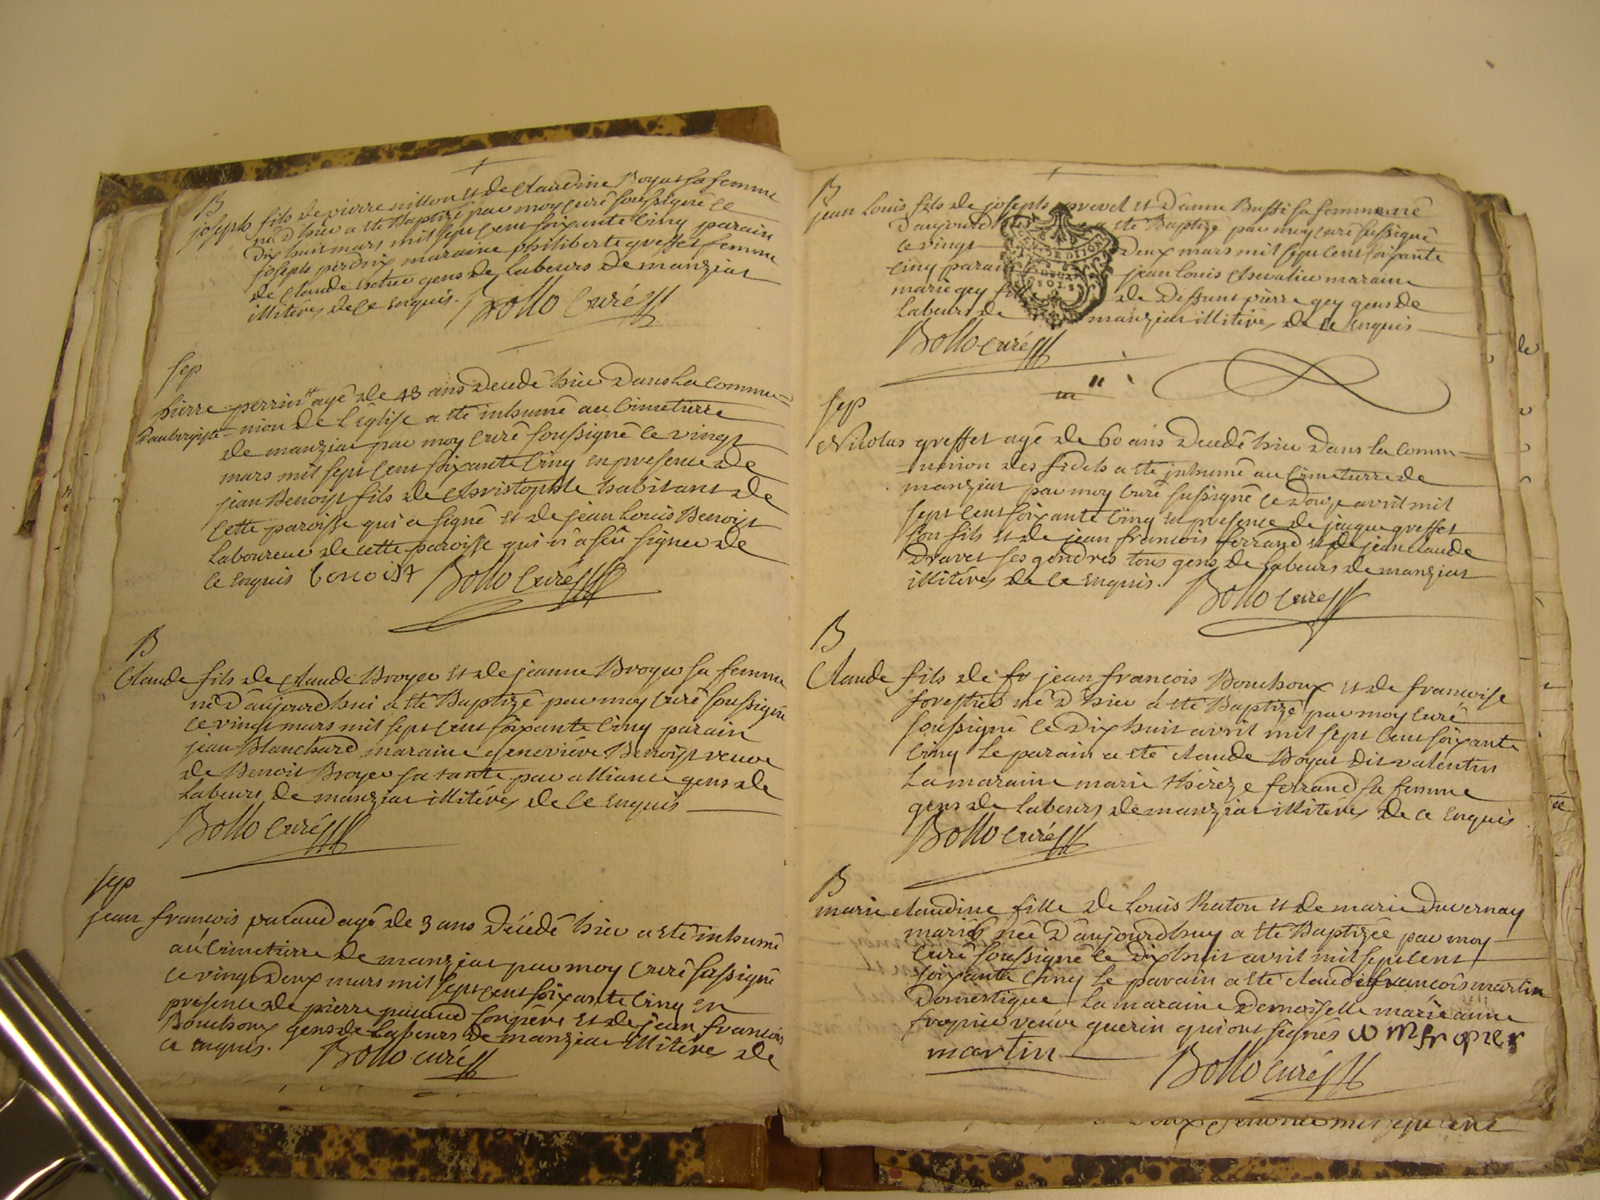 B
joseph fils de pierre nillon et de Claudine Boyat sa femme
né d'hier a eté Baptizé par moy curé soussigné le
dix huit mars mil sept cent soixante cinq parain
joseph perdrix maraine philiberte greffet femme
de Claude gens de labeurs de manziat
illitérés de ce enquis. Bollo Curé
sep
pierre perrin agé de 48 ans decedé hier dans la commu=
L'aubergiste =nion de l'église a eté inhumé au Cimetierre
de manziat par moy curé soussigné le vingt
mars mil sept cent soixante cinq en presence de
jean Benoist fils de Christophle habitant de
cette paroisse qui a signé et de jean Louis Benoist
laboureur de cette paroisse qui n'a sçû signer de
ce enquis benoist Bollo Curé
B
Claude fils de Claude Broyer et de jeanne Broyer sa femme
né d'aujourdhui a eté Baptizé par moy curé soussigné
le vingt mars mil sept cent soixante cinq parain
jean Blanchard maraine genevieve Benoist veuve
de Benoit Broyer sa tante par alliance gens de
labeurs de manziat illitérés de ce enquis
Bollo curé
sep
jean francois pacaud agé de 3 ans décédé hier a eté inhumé
au Cimetierre de manziat par moy curé sussigné
le vingt deux mars mil sept cent soixante cinq en
presence de pierre pacaud son père et de jean francois
Bouchoux gens de labeurs de manziat illitéré de
ce enquis. Bollo curé
B
jean Louis fils de joseph prevel et d'anne Bussi sa femme né
d'aujourd eté Baptizé par moy curé sussigné
le vingt deux mars mil sept cent soixante
cinq parain jean Louis Chevalier maraine
marie gey fille de deffunt pierre gey gens de
labeurs de manziat illitérés de ce enquis
Bollo curé
sep
Nicolas greffet agé de 60 ans decedé hier dans la comm=
=union des fidels a eté inhumé au Cimetierre de
manziat par moy curé sussigné le douze avril mil
sept cent soixante cinq en presence de jaque greffet
son fils et de jean francois ferrand et de jean claude
dravet ses gendres tous gens de labeurs de manziat
illitérés de ce enquis. Bollo curé
B
Claude fils de fr jean francois Bouchoux et de francoise
forestier né d'hier a eté Baptizé par moy curé
soussigné le dix huit avril mil sept cent soixante
cinq le parain a eté claude Boyat dit valentin
la maraine marie thereze ferrand sa femme
gens de labeurs de manziat illitérés de ce enquis
Bollo curé
B
marie claudine fille de Louis Raton et de marie duvernay
mariés née d'aujourd'huy a eté Baptizée par moy
curé soussigné le dix huit avril mil sept cent
soixante cinq le parain a eté claude francois martin
domestique la maraine demoiselle marie anne
fropier veuve guerin qui ont signés m fropier
martin Bollo curé